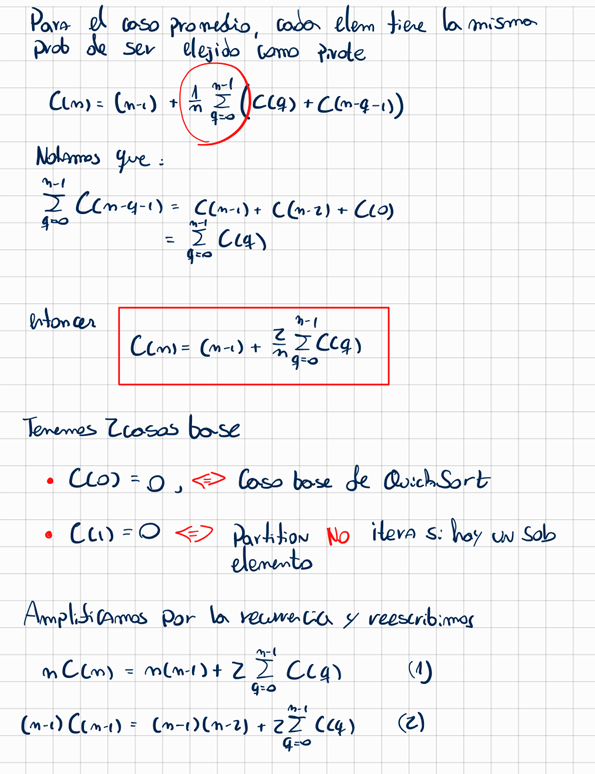 Para el caso promedio, cada elem tiene la misma
prob de ser elejido como pivote
C(n) = (n-1) + 1/n ∑_{q=0}^{n-1} (C(q) + C(n-q-1))
Notamos que:
∑_{q=0}^{n-1} C(n-q-1) = C(n-1) + C(n-2) + C(0)
= ∑_{q=0}^{n-1} C(q)
entonces
C(n) = (n-1) + 2/n ∑_{q=0}^{n-1} C(q)
Tenemos 2 casos base
• C(0) = 0, <=> Caso base de QuickSort
• C(1) = 0 <=> Partition NO itera si hay un solo
elemento
Amplificamos por la recurrencia y reescribimos
nC(n) = n(n-1) + 2 ∑_{q=0}^{n-1} C(q) (1)
(n-1)C(n-1) = (n-1)(n-2) + 2 ∑_{q=0}^{n-1} C(q) (2)